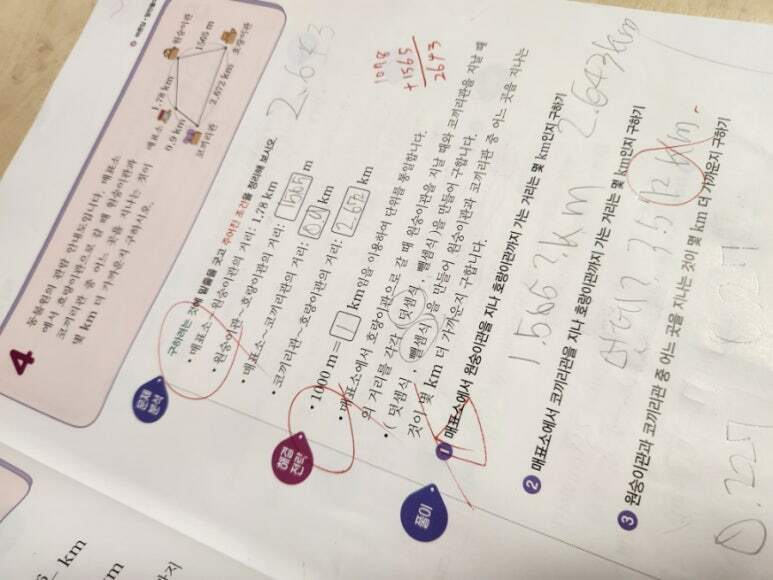 4
동물원의 관람 안내도입니다. 매표소
에서 호랑이관으로 갈 때 원숭이관과
코끼리관 중 어느 곳을 지나는 것이
몇 km 더 가까운지 구하시오.
원숭이관
1565 m
호랑이관
1.78 km
매표소
2.672 km
0.9 km
코끼리관
문제
분석
구하려는 것에 밑줄을 긋고 주어진 조건을 정리해 보시오.
• 매표소~원숭이관의 거리: 1.78 km
• 원숭이관~호랑이관의 거리: 1565 m
• 매표소~코끼리관의 거리: 0.9 km
• 코끼리관~호랑이관의 거리: 2.672 km
2.643
해결
전략
• 1000 m = 1 km임을 이용하여 단위를 통일합니다.
• 매표소에서 호랑이관으로 갈 때 원숭이관을 지날 때와 코끼리관을 지날 때
의 거리를 각각 (덧셈식, 뺄셈식)을 만들어 구합니다.
• (덧셈식, 뺄셈식)을 만들어 원숭이관과 코끼리관 중 어느 곳을 지나는
것이 몇 km 더 가까운지 구합니다.
1078
+1565
2643
풀이
1 매표소에서 원숭이관을 지나 호랑이관까지 가는 거리는 몇 km인지 구하기
2.643km
2 매표소에서 코끼리관을 지나 호랑이관까지 가는 거리는 몇 km인지 구하기
3 원숭이관과 코끼리관 중 어느 곳을 지나는 것이 몇 km 더 가까운지 구하기
km
km